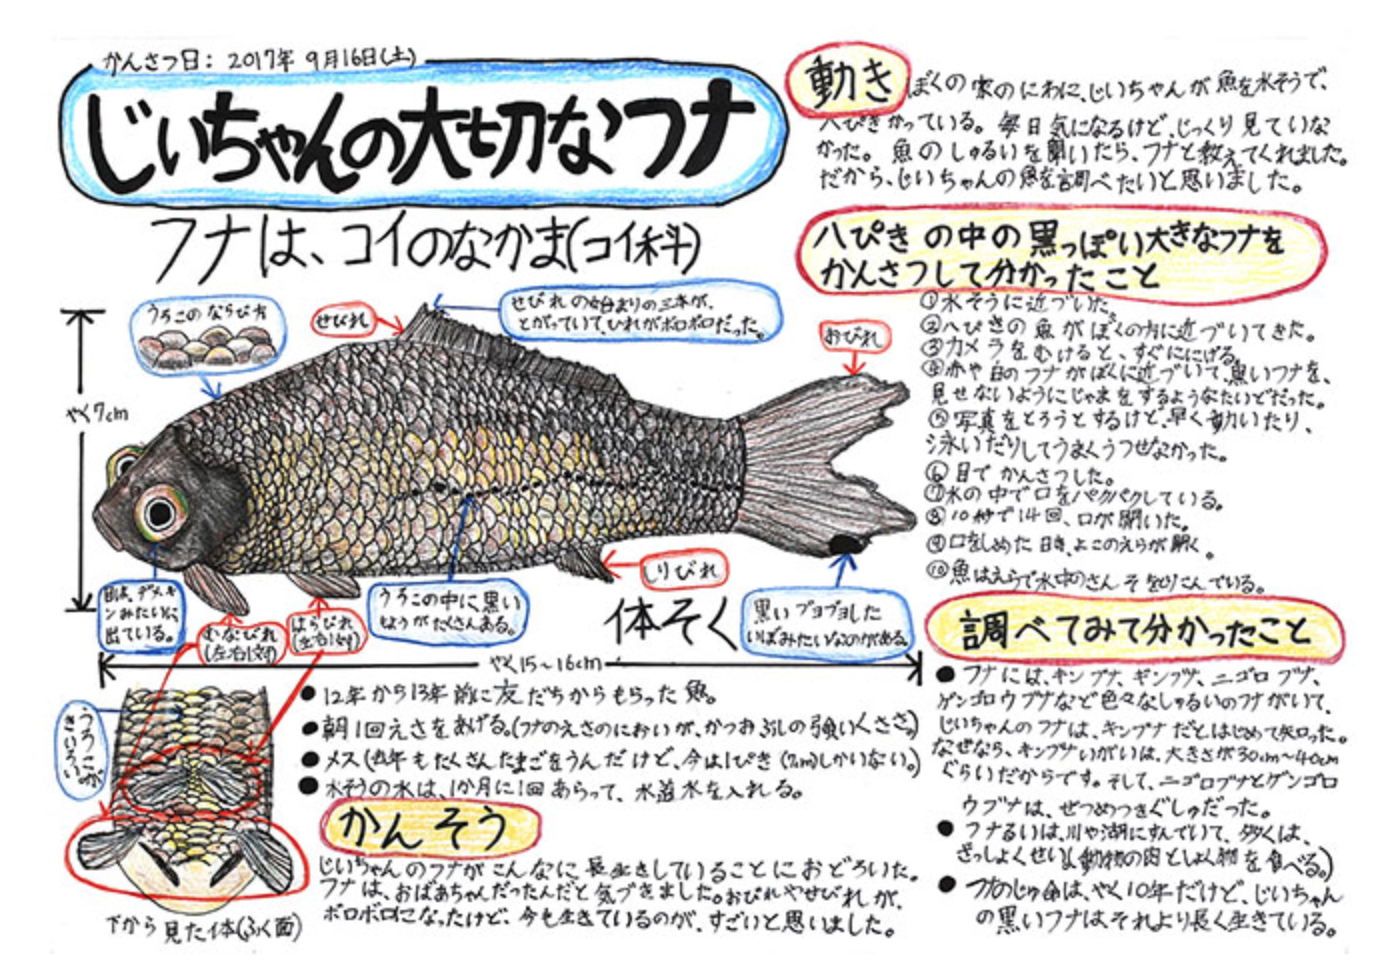 かんさつ日：2017年9月16日(土)
じいちゃんの大切なフナ
フナは、コイのなかま(コイ科)
動き
ぼくの家のにわに、じいちゃんが魚を水そうで、
八ぴきかっている。毎日気になるけど、じっくり見ていな
かった。魚のしゅるいを聞いたら、フナと教えてくれました。
だから、じいちゃんの魚を調べたいと思いました。
八ぴきの中の黒っぽい大きなフナを
かんさつして分かったこと
①水そうに近づいた。
②八ぴきの魚がぼくの方に近づいてきた。
③カメラをむけると、すぐににげる。
④赤や白のフナがぼくに近づいて、黒いフナを、
見せないようにじゃまをするようなたいどだった。
⑤写真をとろうとするけど、早く動いたり、
泳いだりしてうまくうつせなかった。
⑥目でかんさつした。
⑦水の中で口をパクパクしている。
⑧10秒で14回、口が開いた。
⑨口をしめた時、よこのえらが開く。
⑩魚はえらで水中のさんそをとりこんでいる。
うろこのならび方
せびれ
せびれの始まりの三本が、
とがっていて、ひれがボロボロだった。
おびれ
やく7cm
目は、デメキ
ンみたいに、
出ている。
むなびれ
(左右1対)
はらびれ
(左右1対)
うろこの中に黒い
もようがたくさんある。
しりびれ
体そく
黒いプヨプヨした
いぼみたいなのがある。
やく15～16cm
うろこが
きいろい
下から見た体(ふく面)
●12年から13年前に友だちからもらった魚。
●朝1回えさをあげる。(フナのえさのにおいが、かつおぶしの強いくささ)
●メス(去年もたくさんたまごをうんだけど、今は1ぴき(7cm)しかいない。)
●水そうの水は、1か月に1回あらって、水道水を入れる。
かんそう
じいちゃんのフナがこんなに長生きしていることにおどろいた。
フナは、おばあちゃんだったんだと気づきました。おびれやせびれが、
ボロボロになったけど、今も生きているのが、すごいと思いました。
調べてみて分かったこと
●フナには、キンブナ、ギンブナ、ニゴロブナ、
ゲンゴロウブナなど色々なしゅるいのフナがいて、
じいちゃんのフナは、キンブナだとはじめて知った。
なぜなら、キンブナいがいは、大きさが30cm～40cm
ぐらいだからです。そして、ニゴロブナとゲンゴロ
ウブナは、ぜつめつきぐしゅだった。
●フナるいは、川や湖にすんでいて、多くは、
ざっしょくせい(動物の肉としょく物を食べる。)
●フナのじゅ命は、やく10年だけど、じいちゃん
の黒いフナはそれより長く生きている。